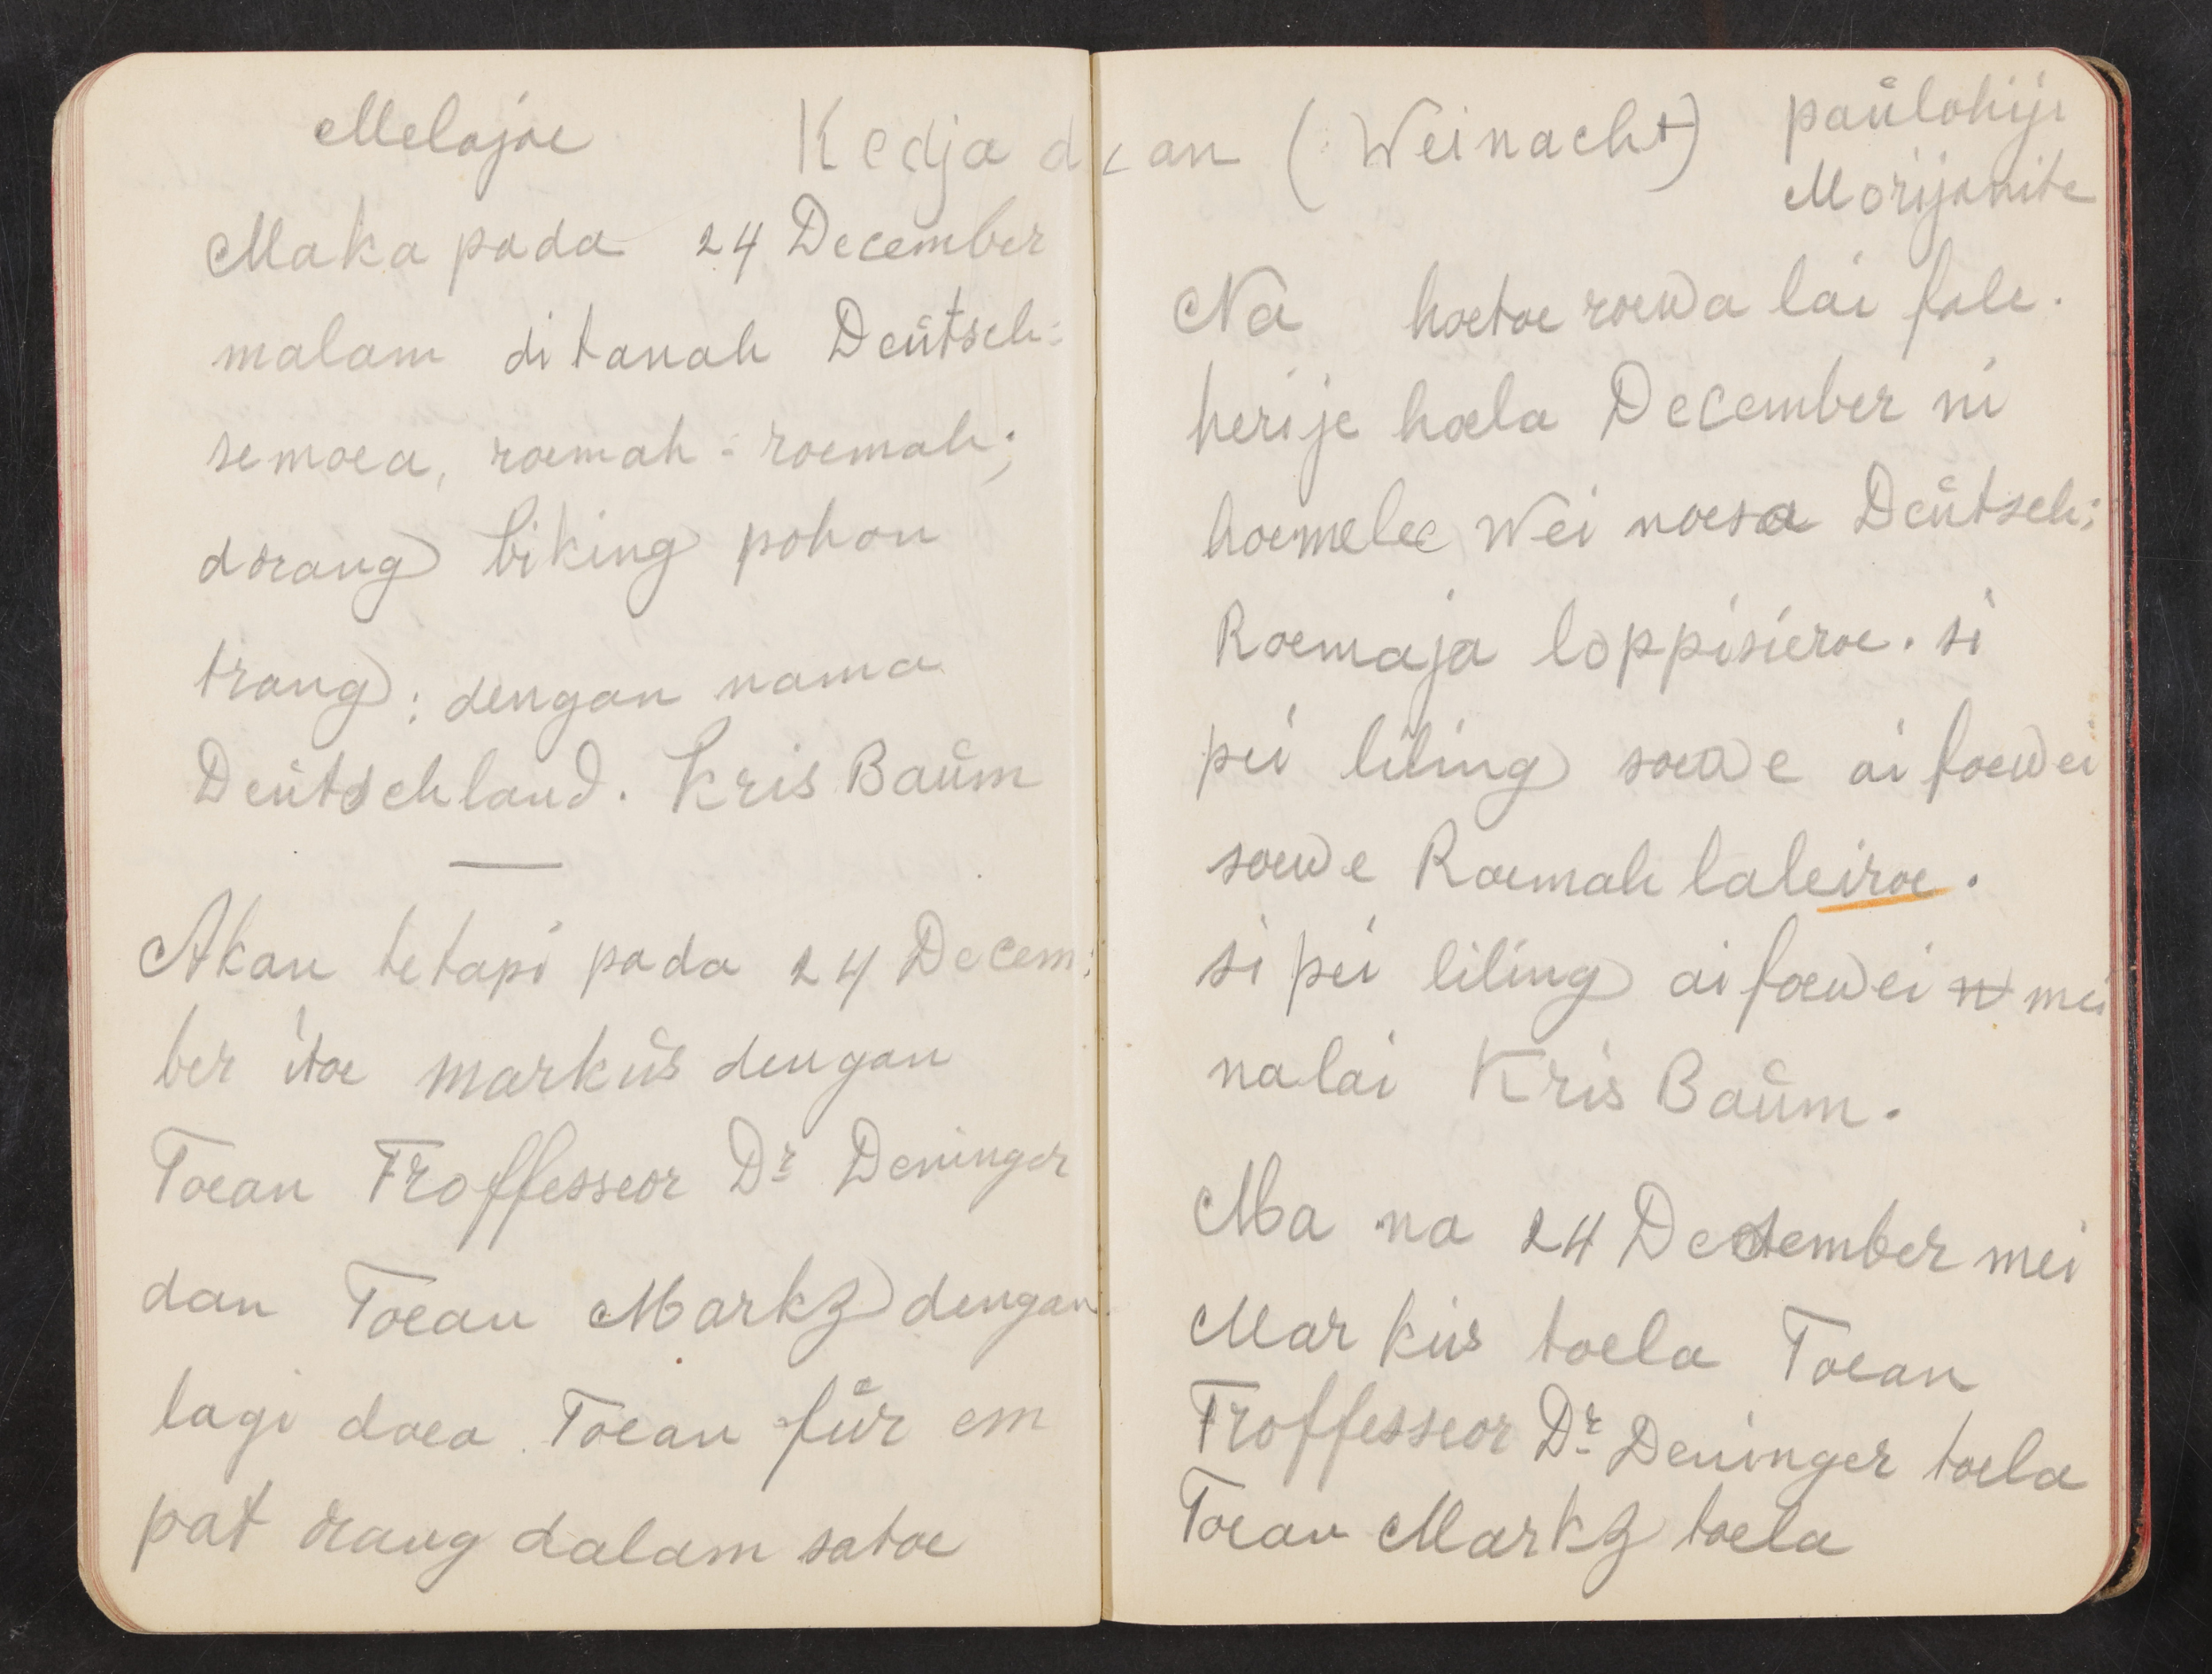 Melajoe
Kedjadian (Weinacht)
Maka pada 24 December
malam ditanah Deütsch:
semoea, roemah-roemah;
dorang biking pohon
trang: dengan nama
Deütschland. Kris Baüm
Akan tetapi pada 24 Decem:
ber itoe marküs dengan
Toean Froffesseor Dr Deninger
dan Toean Markz dengan
lagi doea Toean für em
pat orang dalam satoe
paülohiji
Morijanite
Na hoetoe roewa lai fale.
herije hoela December ni
hoemelee Wei noesa Deütsch:
Roemaja loppisieroe. si
pei liling soewe ai foewei
soewe Roemah laleiroe.
si pei liling ai foewei mei
nalai Kris Baüm.
Ma na 24 December mei
Marküs toela Toean
Froffesseor Dr Deninger toela
Toean Markz toela